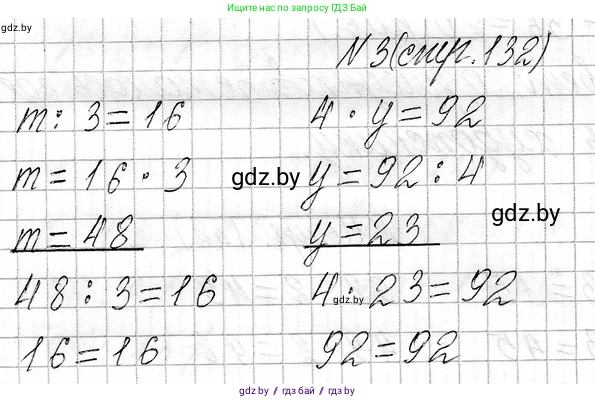 Ищите нас по запросу ГДЗ Бай
gdz.by
N 3 (стр. 132)
m : 3 = 16
m = 16 · 3
m = 48
48 : 3 = 16
16 = 16
4 · y = 92
y = 92 : 4
y = 23
4 · 23 = 92
92 = 92
gdz.by
gdz.by
gdz.by
gdz.by / гдз бай / gdz.by